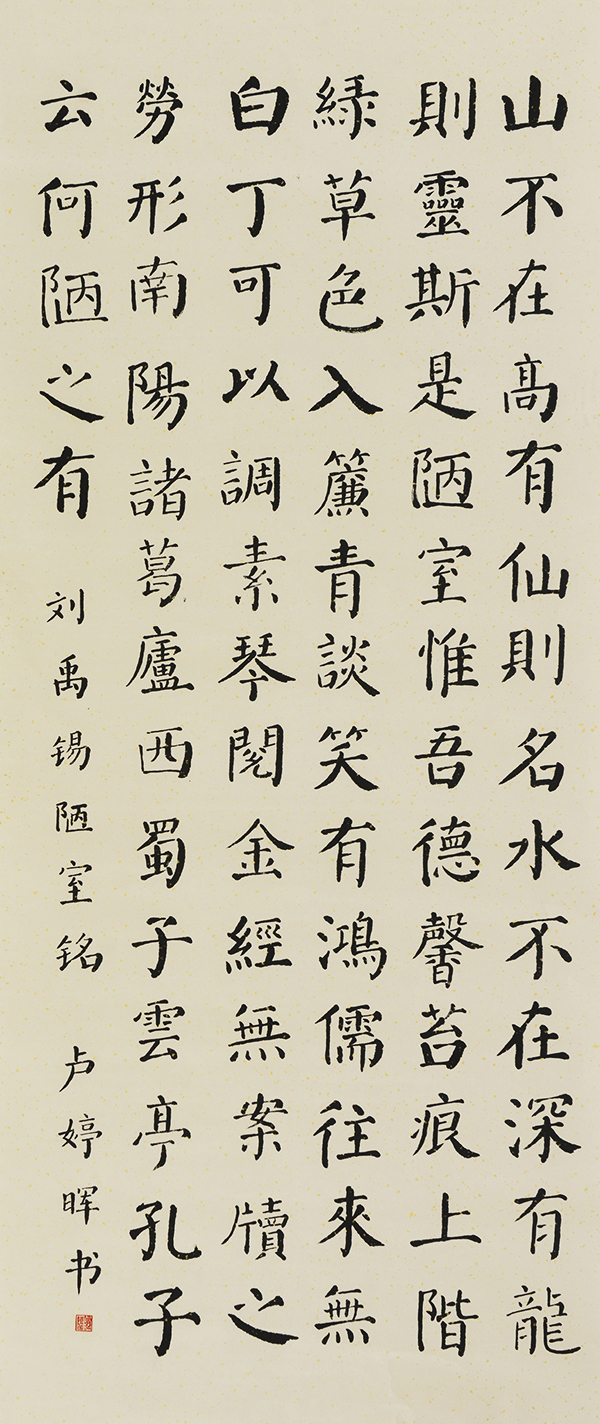 山不在髙有仙則名水不在深有龍
則靈斯是陋室惟吾德馨苔痕上階
緑草色入簾青談笑有鴻儒往來無
白丁可以調素琴閱金經無案牘之
勞形南陽諸葛廬西蜀子雲亭孔子
云何陋之有 刘禹锡陋室铭 卢婷晖书